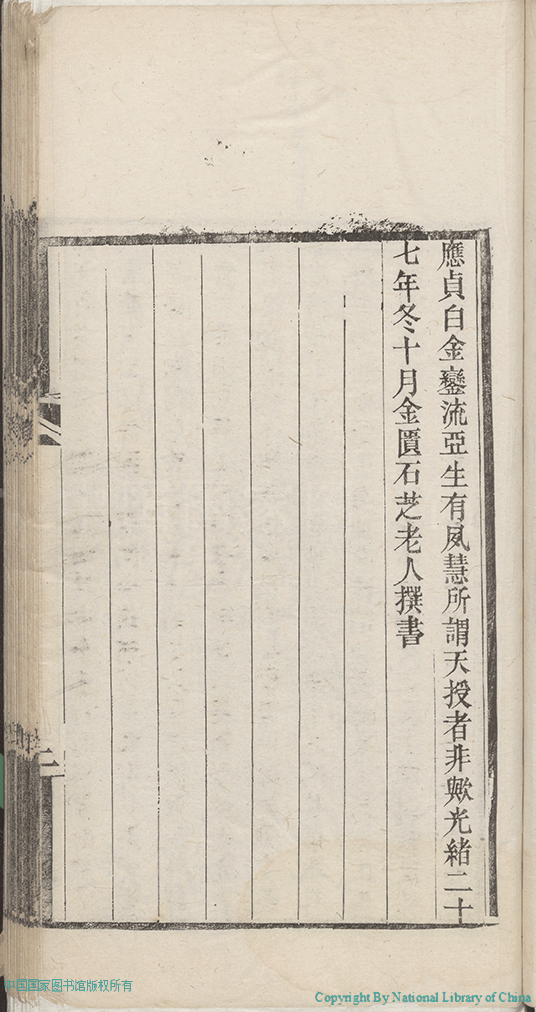 應貞白金鑾流亞生有夙慧所謂天授者非歟光緒二十
七年冬十月金匱石芝老人撰書
二
中国国家图书馆版权所有
Copyright By National Library of China